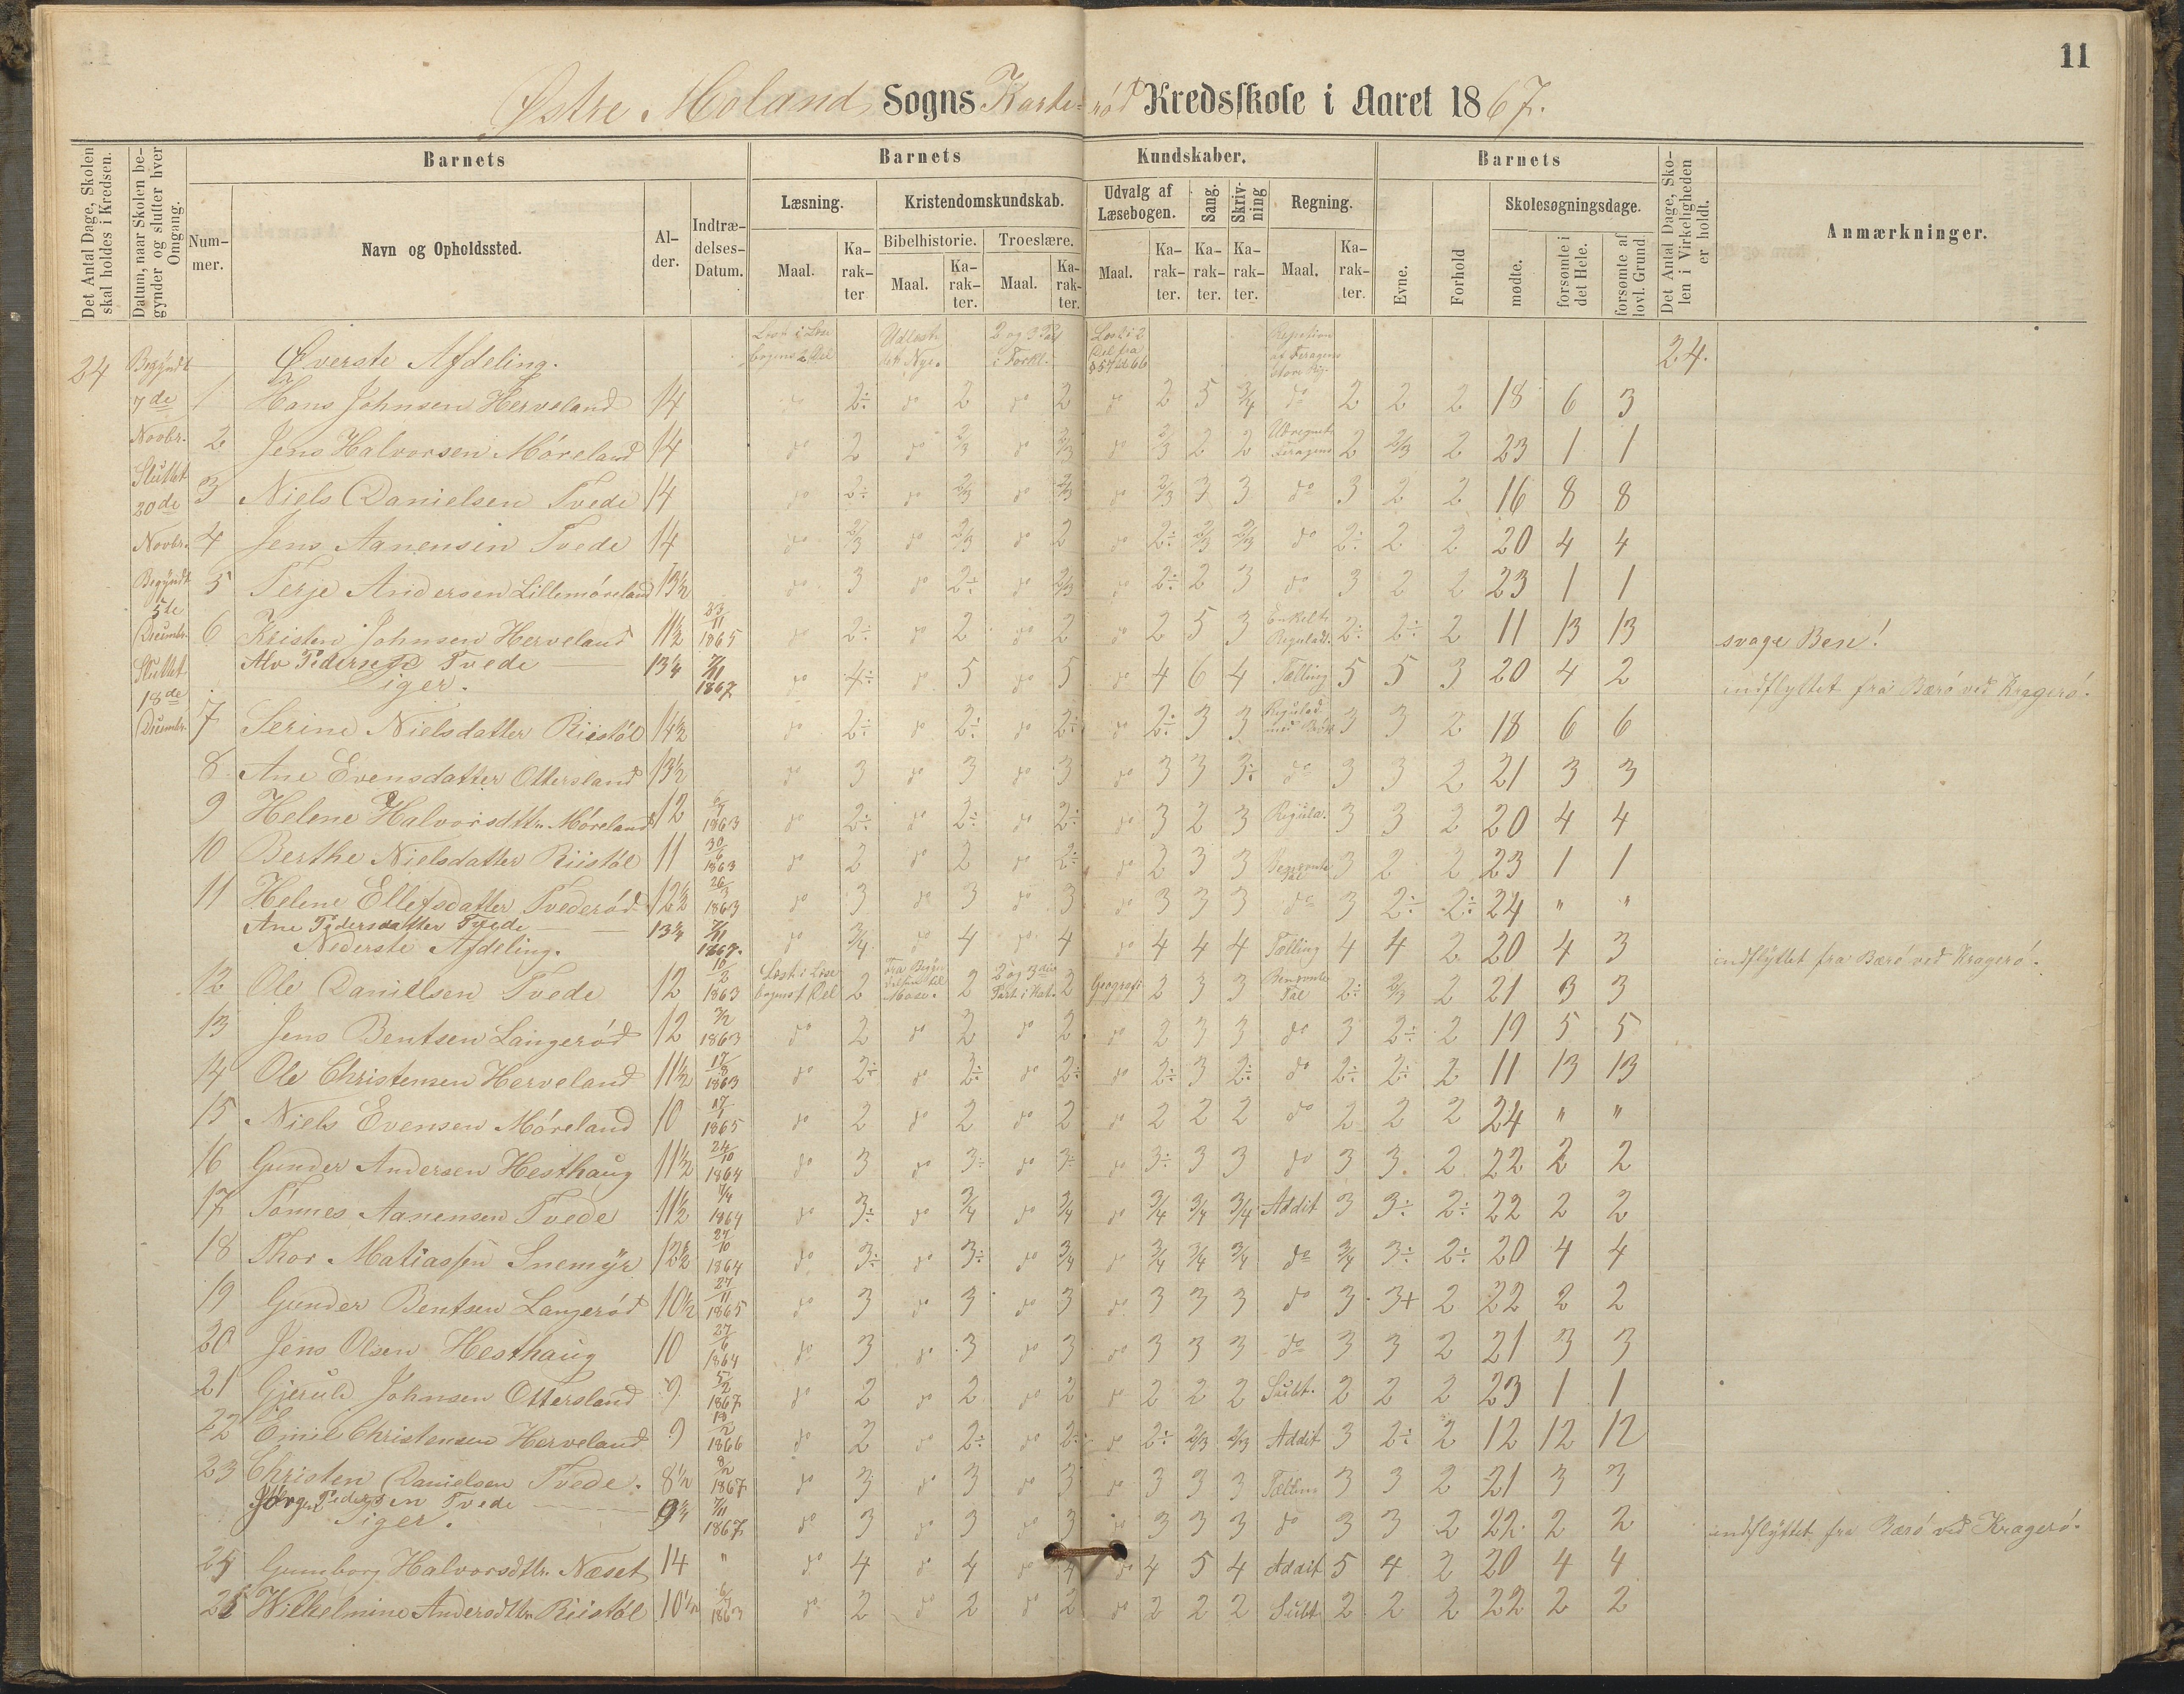 11
Østre Moland Sogns Karterød Kredsskole i Aaret 1867.
Det Antal Dage, Skolen skal holdes i Kredsen.
Datum, naar Skolen begynder og slutter hver Omgang.
Barnets
Nummer.
Navn og Opholdssted.
Alder.
Indtrædelses-Datum.
Barnets Kundskaber.
Læsning. Maal. Karakter
Kristendomskundskab.
Bibelhistorie. Maal. Karakter.
Troeslære. Maal. Karakter.
Udvalg af Læsebogen. Maal. Karakter.
Sang. Karakter.
Skrivning Karakter.
Regning. Maal. Karakter.
Barnets
Evne.
Forhold
Skolesøgningsdage.
mødte.
forsømte i det Hele.
forsømte af lovl. Grund
Det Antal Dage, Skolen i Virkeligheden er holdt.
Anmærkninger.
24 Begÿndt 7de Novbr. Sluttet 20de Novbr. Begÿndt 5te Decembr. Sluttet 18de Decembr.
Øverste Afdeling. Læst i Læsebogens 2 Del 2 og 3 Part i Forkl. Læst i 2 Del fra § 57 til 66 24.
1 Hans Johnsen Herveland 14 do 2÷ do 2 do 2 do 2 5 3/4 do 2 2 2 18 6 3
2 Jens Halvorsen Móreland 14 do 2 do 2/3 do 2/3 do 2/3 2 2 2 2/3 2 23 1 1
3 Niels Danielsen Tvede 14 do 2÷ do 2/3 do 2/3 do 2/3 3 3 do 3 2 2 16 8 8
4 Jens Aanensen Tvede 14 do 2/3 do 2/3 do 2 do 2÷ 2/3 2/3 do 2÷ 2 2 20 4 4
5 Terje Andersen Lillemóreland 13½ do 3 do 2÷ do 2/3 do 2÷ 2 3 do 3 2 2 23 1 1
6 Kristen Johnsen Herveland 11½ 23/11 1865 do 2÷ do 2 do 2 do 2 5 3 Enkelte Regulad. 2÷ 2÷ 2 11 13 13 svage Ben!
Alv Pedersen Tvede 13¼ 7/11 1867 do 4÷ do 5 do 5 do 4 6 4 Tælling 5 5 3 20 4 2 indflyttet fra Bæró ved Krageró.
Piger.
7 Serine Nielsdatter Riistól 14½ do 2÷ do 2÷ do 2÷ do 2÷ 3 3 3 3 2 18 6 6
8 Ane Evensdatter Ottersland 13½ do 3 do 3 do 3 do 3 3 3÷ do 3 3 2 21 3 3
9 Helene Halvorsdttr. Móreland 12 1863 do 2÷ do 2÷ do 2÷ do 3 2 3 Regula. 3 3 2 20 4 4
10 Berthe Nielsdatter Riistól 11 1863 do 2 do 2 do 2÷ do 2 3 3 3 2 2 23 1 1
11 Helene Ellefsdatter Tvederód 12½ 26/3 1863 do 3 do 3 do 3 do 3 3 3 do 3 2÷ 2÷ 24 " "
Ane Pedersdatter Tvede 13¼ 7/11 1867. do 3/4 do 4 do 4 do 4 4 4 Tælling 4 4 2 20 4 3 indflyttet fra Bæró ved Krageró.
Nederste Afdeling.
12 Ole Daniellsen Tvede 12 1863 Læst i Læsebogens 1 Del 2 2 2 Geografi 2 3 3 Benævnte Tal 2÷ 2/3 2 21 3 3
13 Jens Bentsen Langeród 12 1863 do 2 do 2 do 2 do 2 3 3 do 3 2÷ 2 19 5 5
14 Ole Christensen Herveland 11½ 17/8 1863 do 2÷ do 2÷ do 2÷ do 2÷ 3 2÷ do 2÷ 2÷ 2 11 13 13
15 Niels Evensen Móreland 10 17/1 1865 do 2 do 2 do 2 do 2 2 2 do 2 2 2 24 " "
16 Gunder Andersen Hesthaug 11½ 24/10 1864 do 3 do 3÷ do 3÷ do 3÷ 3 3 do 3 3. 2 22 2 2
17 Tónnes Aanensen Tvede 11½ 1864 do 3÷ do 3/4 do 3/4 do 3/4 3/4 3/4 Addit 3 3÷ 2÷ 22 2 2
18 Thor Matiassen Snemÿr 12½ 27/10 1864 do 3÷ do 3÷ do 3/4 do 3/4 3/4 3/4 do 3/4 3÷ 2÷ 20 4 4
19 Gunder Bentsen Langeród 10½ 27/11 1865 do 3 do 3 do 3 do 3 3 3 do 3 3+ 2 22 2 2
20 Jens Olsen Hesthaug 10 27/6 1864 do 3 do 3 do 3 do 3 3 3 do 3 3 2 21 3 3
21 Gjeruld Johnsen Ottersland 9 5/2 1867 do 2 do 2 do 2 do 2 2 2 Subt. 2 2 2 23 1 1
22 Emil Christensen Herveland 9 1866 do 2 do 2÷ do 2÷ do 2÷ 2/3 2/3 Addit 3 2÷ 2 12 12 12
23 Christen Danielsen Tvede. 8½ 8/2 1867 do 3 do 3 do 3 do 3 3 3 Tælling 3 3 2 21 3 3
Jórgen Pedersen Tvede 9¼ 7/11 1867 do 3 do 3 do 3 do 3 3 3 do 3 3 2 22 2 2 indflyttet fra Bæró ved Krageró.
Piger.
Gunnborg Halvorsdttr. Næset 14 " do 4 do 4 do 4 do 4 5 4 Addit 5 4 2 20 4 4
Wilhelmine Andersdttr. Riistól 10½ 6/7 1863 do 2 do 2 do 2 do 2 2 2 Subt 2 2 2 22 2 2